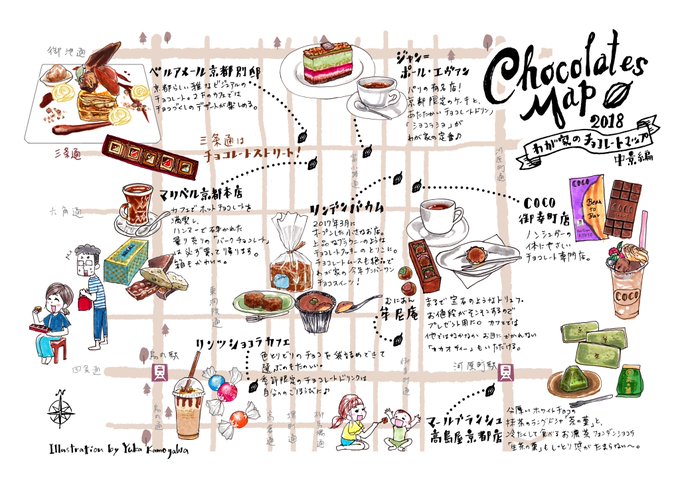 御池通
ベルアメール京都別邸
京都らしい雅なビジュアルの
チョコレート。2Fのカフェでは
チョコづくしのデザートが楽しめる。
ジャン=
ポール・エヴァン
パリの有名店!
京都限定のケーキと、
あたたかいチョコレートドリンク
「ショコラショ」が
わが家の定番♪
Chocolates
Map
2018
わが家のチョコレートマップ
中京編
三条通
三条通は
チョコレートストリート!
六角通
マリベル京都本店
カフェでホットチョコレートを
満喫し、
ハンマーで
量り売りの「バークチョコレート」
は必ず買って帰ります。
箱もかわいい。
リンデンバウム
2017年3月に
オープンした小さなお店。
チョコレートムースも絶品で
わが家の今年ナンバーワン
チョコスイーツ!
COCO
御幸町店
ノンシュガーの
体にやさしい
チョコレート専門店。
COCO
Bean
to
Bar
COCO
むにあん
牟尼庵
まるで宝石のようなトリュフ。
お値段がそこそこするので
プレゼント用に。カフェでは
他ではなかなかお目にかかれない
「カカオティー」もいただける。
東洞院通
四条通
烏丸駅
烏丸通
リンツショコラカフェ
色とりどりのチョコを袋づめできて
選ぶのもたのしい。
季節限定のチョコレートドリンクは
自分へのごほうびに♪
高倉通
堺町通
柳馬場通
河原町駅
マールブランシュ
高島屋京都店
分厚いホワイトチョコの
抹茶のラングドシャ「茶の菓」と、
冷たくして食べるお濃茶フォンダンショコラ
「生茶の菓」もしっとり感がたまらない〜。
N
Illustration by Yuka Kamogawa